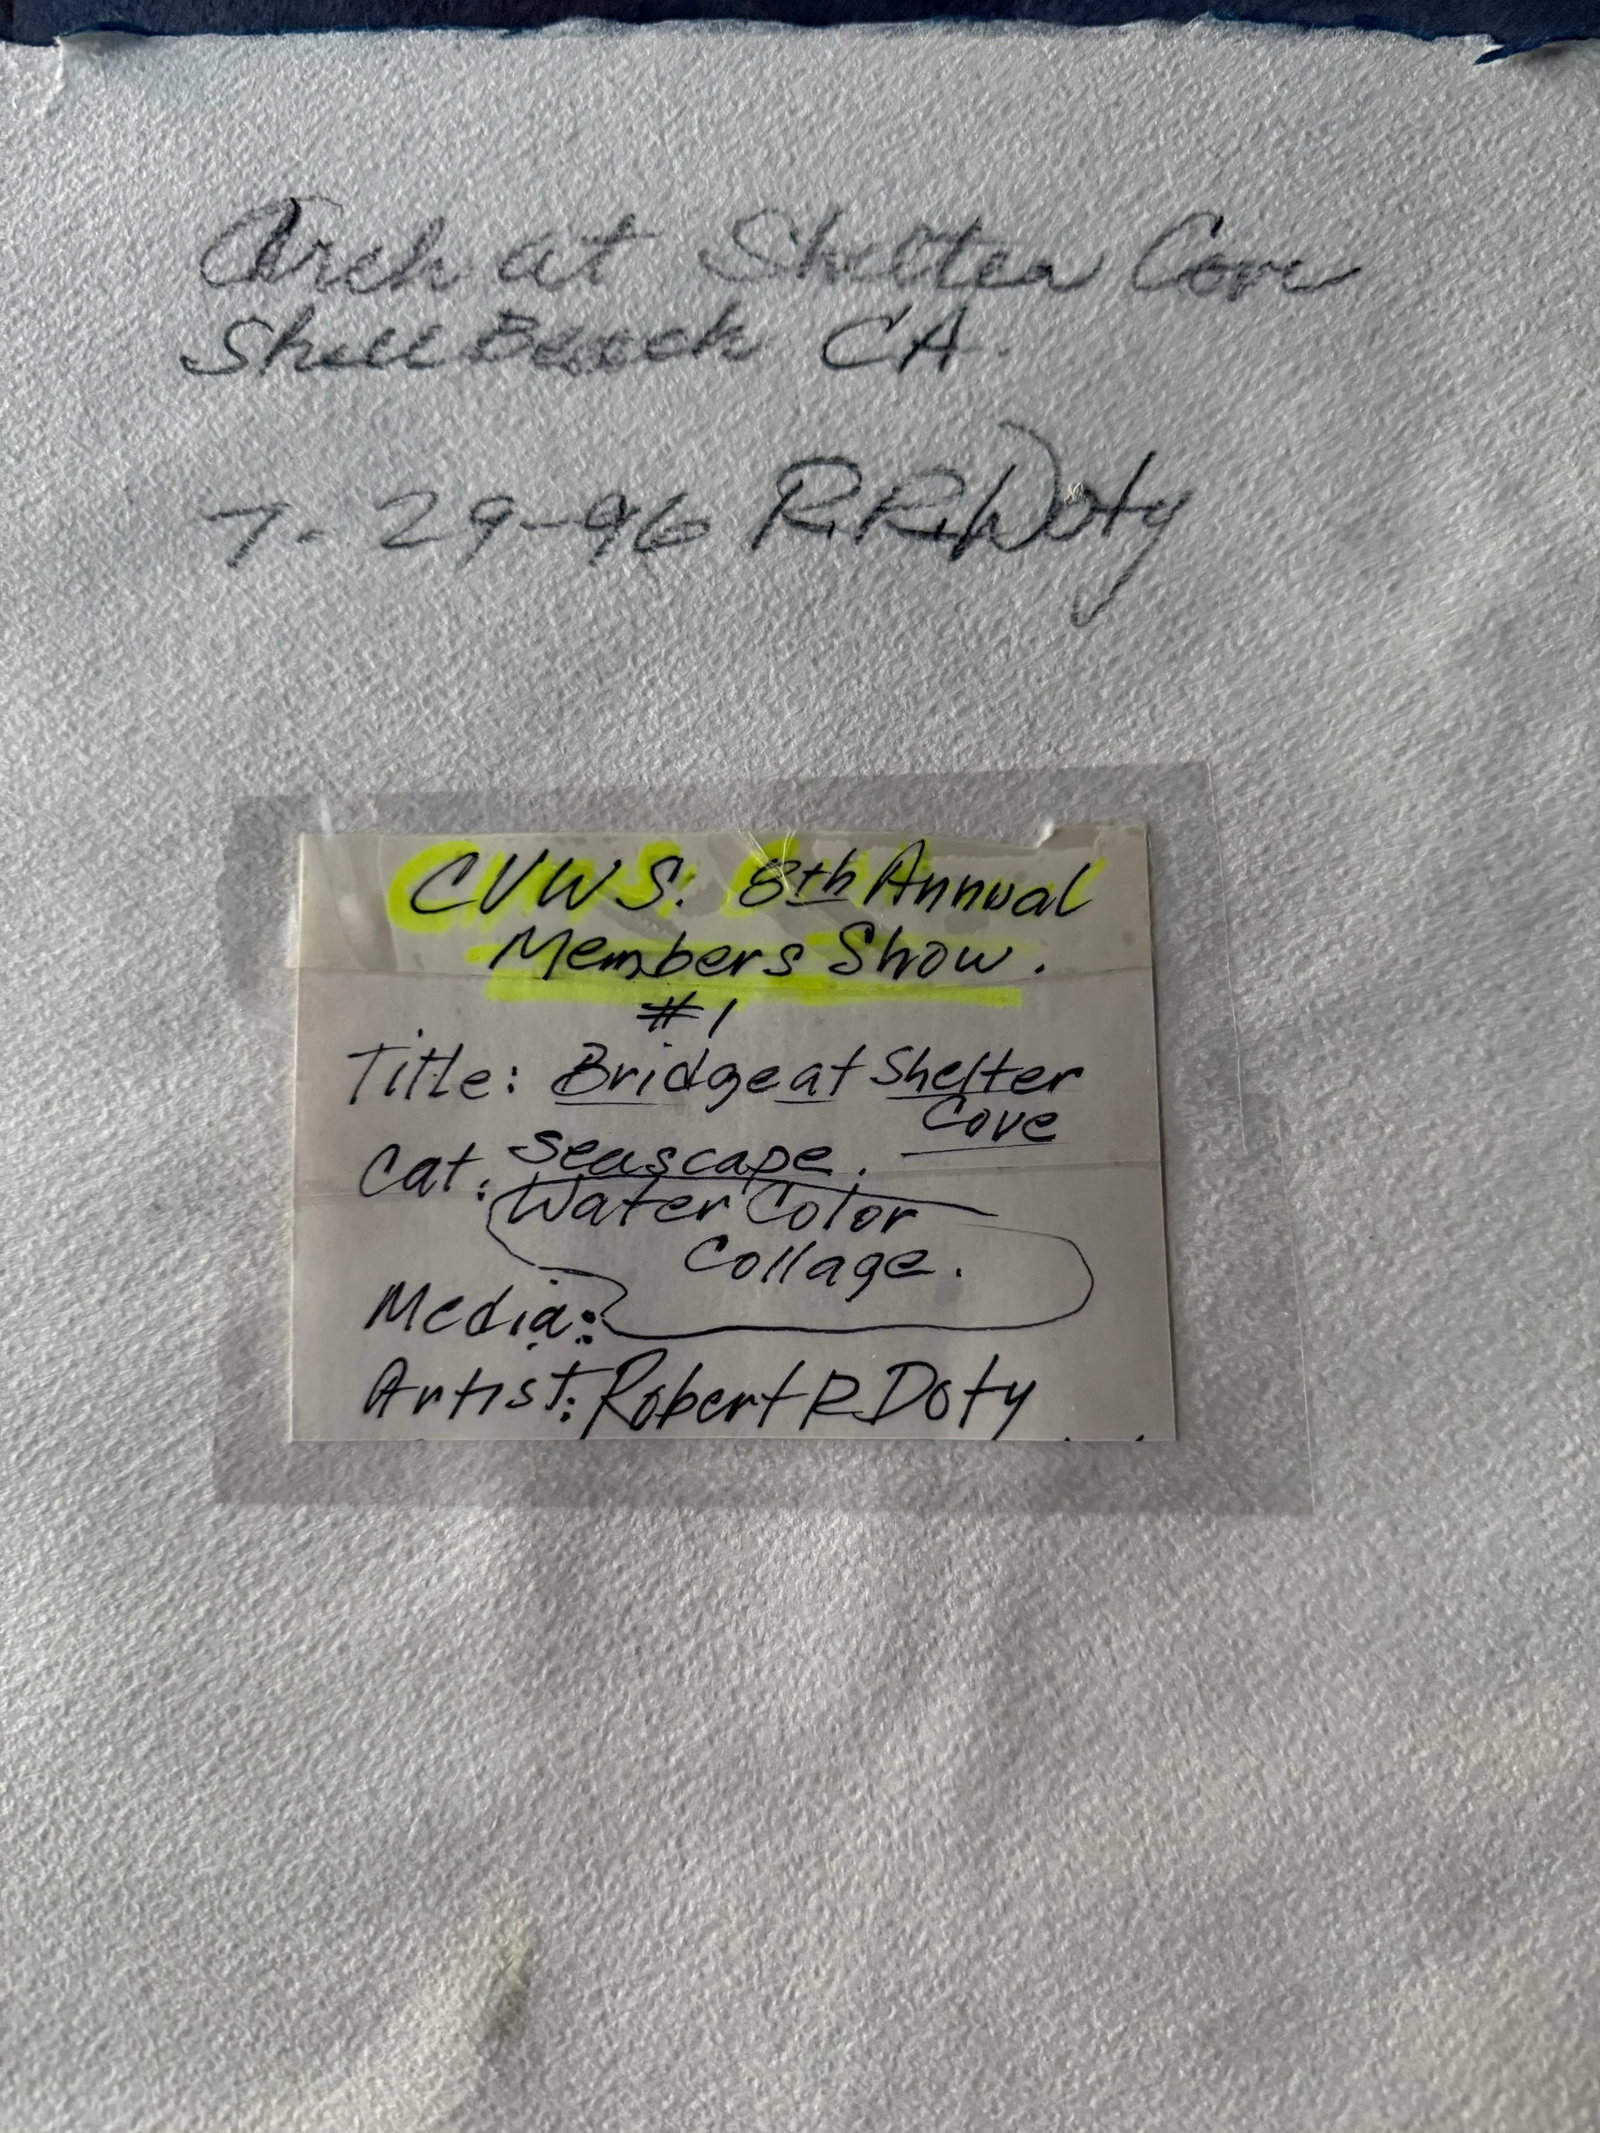 Arch at Shelter Cove
Shell Beach CA.
7-29-96 R.R. Doty
CVWS: 8th Annual
Members Show.
#1
Title: Bridge at Shelter
Cove
Cat: Seascape.
Water Color
Collage.
Media:
Artist: Robert R Doty